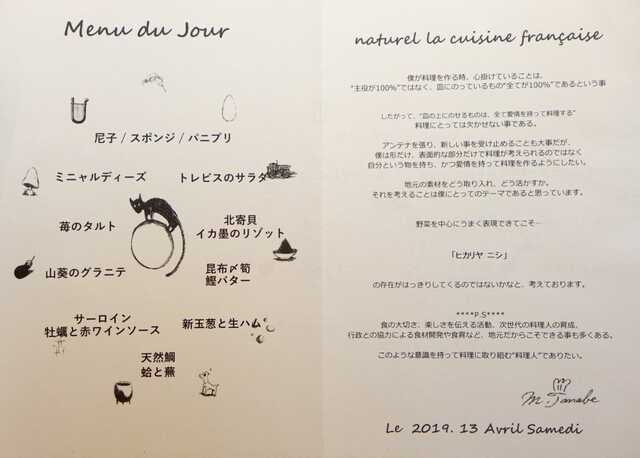 Menu du Jour
尼子 / スポンジ / パニプリ
ミニャルディーズ
トレビスのサラタ
苺のタルト
北寄貝
イカ墨のリゾット
山葵のグラニテ
昆布〆筍
鰹バター
サーロイン
牡蠣と赤ワインソース
新玉葱と生ハム
天然鯛
蛤と蕪
naturel la cuisine française
僕が料理を作る時、心掛けていることは、
“主役が100%”ではなく、皿にのっているもの“全てが100%”であるという事
したがって、“皿の上にのせるものは、全て愛情を持って料理する”
料理にとっては欠かせない事である。
アンテナを張り、新しい事を受け止めることも大事だが、
僕は形だけ、表面的な部分だけで料理が考えられるのではなく
自分という物を持ち、かつ愛情を持って料理を作るようにしたい。
地元の素材をどう取り入れ、どう活かすか。
それを考えることは僕にとってのテーマであると思っています。
野菜を中心にうまく表現できてこそ…
「ヒカリヤ ニシ」
の存在がはっきりしてくるのではないかなと、考えております。
****P.S****
食の大切さ、楽しさを伝える活動、次世代の料理人の育成、
行政との協力による食材開発や食育など、地元だからこそできる事も多くある。
このような意識を持って料理に取り組む“料理人”でありたい。
M. Tanabe
Le 2019. 13 Avril Samedi